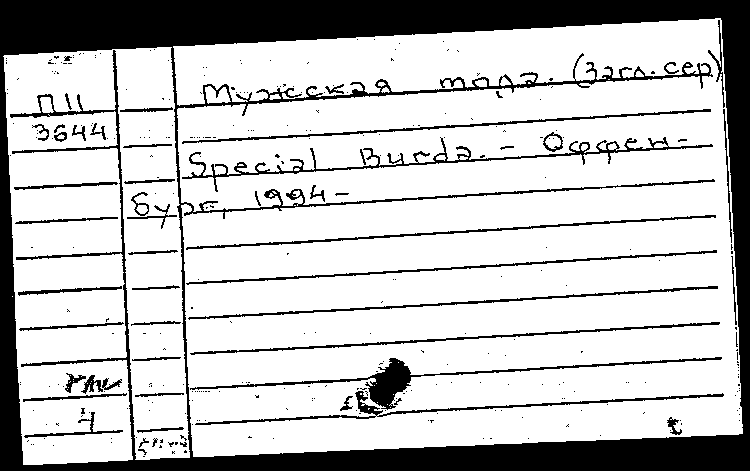 Мужская мода. (Загл. сер)
П11
3644
Special Burda. - Оффен-
бург, 1994-
4